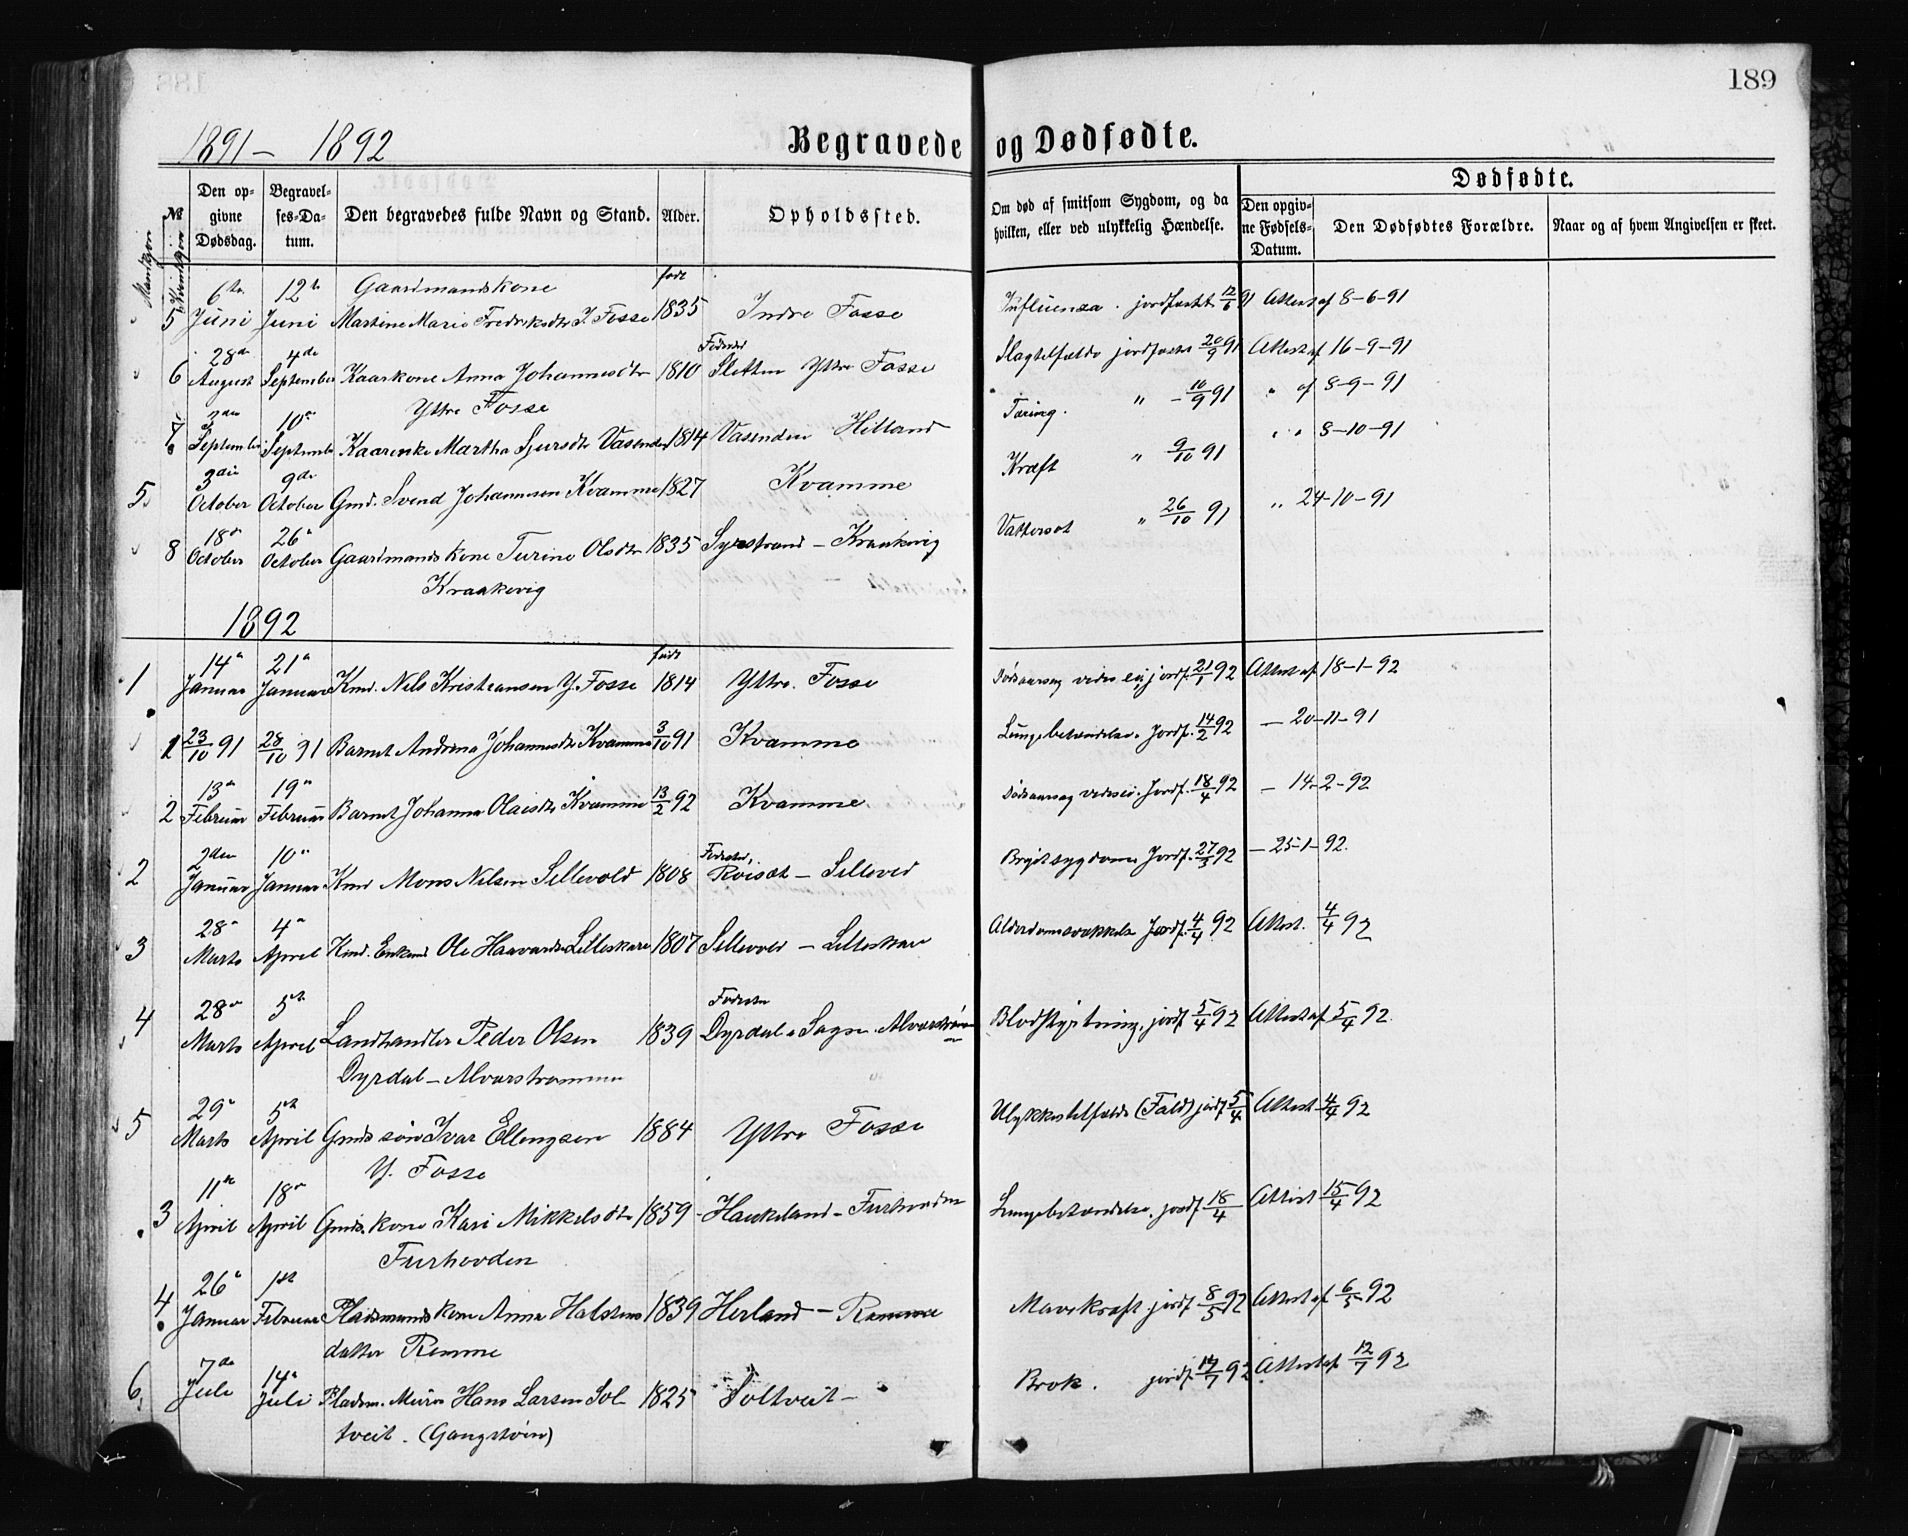 189
1891 – 1892
Begravede og Dødfødte.
Mandkjøn
№ Kvindkjøn
Den opgivne Dødsdag.
Begravelses-Datum.
Den begravedes fulde Navn og Stand.
Alder.
Opholdssted.
Om død af smitsom Sygdom, og da hvilken, eller ved ulykkelig Hændelse.
Dødfødte.
Den opgivne Fødsels-Datum.
Den Dødfødtes Forældre.
Naar og af hvem Angivelsen er skeet.
6te 12te Gaardmandskone født
5 Juni Juni Martine Marie Fredriksdtr I. Fosse 1835 Indre Fosse Influenza. jordfæstet 12/6 91 Attest af 8-6-91
28de 4de Fødested
6 August September Kaarkone Anna Johannesdtr 1810 Sletten Yttre Fosse Slagtilfælde jordfæstet 20/9 91 Attest af 16-9-91
Yttre Fosse
3die 10de
7 September September Kaarenke Martha Sjursdtr Vasenden 1814 Vasenden Hilland Tæring. " - 10/9 91 " af 8-9-91
3die 9de
5 October October Gmd. Svend Johannesen Kvamme 1827 Kvamme Kræft " 9/10 91 " " 8-10-91
18de 26de
8 October October Gaardmandskone Turine Olsdtr 1835 Syltstrand – Kraakevig Vattersot " 26/10 91 " 24-10-91
Kraakevig
1892
14de 21de født
1 Januar Januar Kmd. Nils Kristiansen Y. Fosse 1814 Yttre Fosse Dødsaarsag vides ei, jordf. 21/1 92 Attest af 18-1-92
1 23/10 91 28/10 91 Barnet Andrina Johannesdtr Kvamme 3/10 91 Kvamme Lungebetændelse. Jordf. 14/2 92 – 20-11-91
13de 19de
2 Februar Februar Barnet Johanna Olaisdtr Kvamme 13/2 92 Kvamme Dødsaarsag vides ei. Jordf. 18/4 92 – 14-2-92
2den 10de Fødested,
2 Januar Januar Kmd Mons Nilsen Sellevold 1808 Risøt – Sellevold Brystsygdom Jordf. 27/3 92 – 25-1-92.
28de 4de
3 Marts April Kmd. Enkemd Ole Haavardsen Lilleskare 1807 Sellevold – Lilleskare Alderdomssvækkelse Jordf. 4/4 92 Attest. 4/4 92
28de 5te Fødested
4 Marts April Landhandler Peder Olsen 1839 Dyrdal i Sogn. Alverstrømmen Blodstyrtning, jordf. 5/4 92 Attest af 5/4 92
Dyrdal – Alverstrømmen
29de 5te
5 Marts April Gmds søn Ivar Ellingsen 1884 Yttre Fosse Ulykkestilfælde (Fald) jordf 5/4 Attest 4/4 92
Y. Fosse
11te 18de
3 April April Gmds. kone Kari Mikkelsdtr 1859 Haukeland – Furhovden Lungebetændelse. jordf 18/4 Attest 15/4 92
Furhovden
26de 1ste
4 Januar Februar Pladsmandskone Anna Halstens 1839 Herland – Remme Mavekræft jordf. 8/5 92 Attest af 6/5 92
datter Remme
7de 14de
6 Juli Juli Pladsm. Murer Hans Larsen Sol 1825 Soltveit – Brok. jordf. 14/7 92 Attest af 12/7 92
tveit. (Gangstøin)